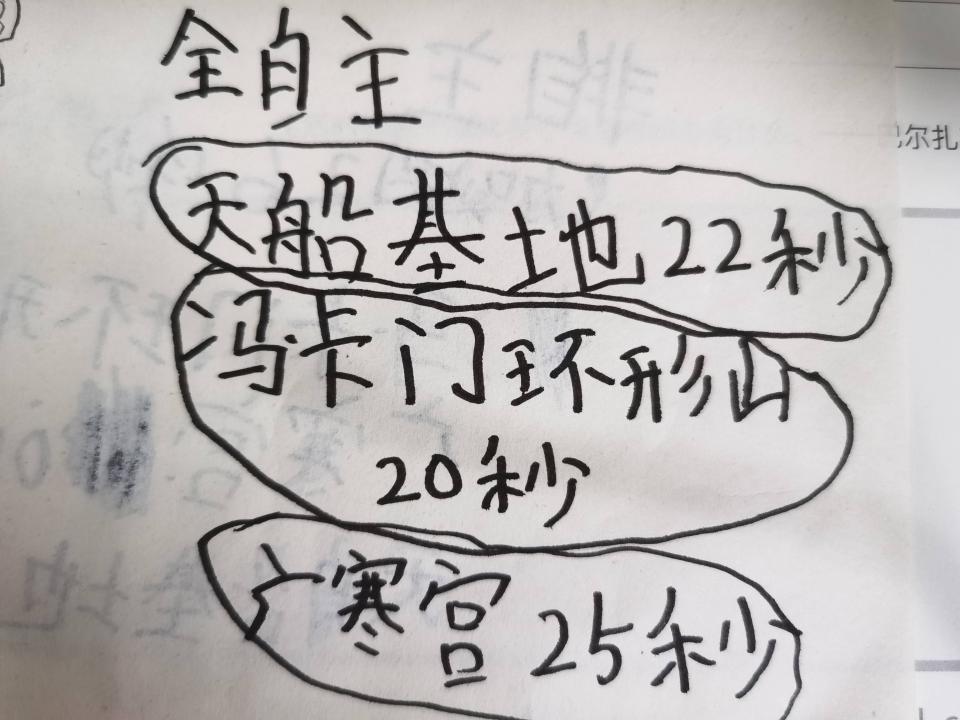 全自主
天船基地22秒
冯·卡门环形山
20秒
广寒宫 25秒
尔扎